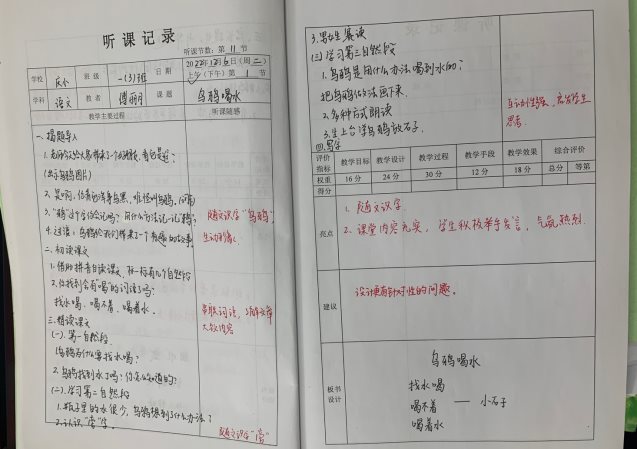 听课记录
听课节数：第11节
学校 民小 班级 一（3）班 日期 2022年12月6日（周二）
上午（下午）第1节
学科 语文 教者 傅丽月 课题 乌鸦喝水
教学主要过程 听课随感
一、揭题导入
1、老师今天给大家带来了一个
（出示乌鸦图片）
2、是啊，
3、"鸦"这个字你会记吗？用什么方法记一记"鸦"？
随文识字"乌鸦"
生动形象。
4、过渡：乌鸦给我们带来了一个有趣的故事。
二、初读课文
1、借助拼音自读课文，标一标有几个自然段
2、你找到含有"喝"的词语了吗？
找水喝、喝不着、喝着水。
串联词语，了解文章
大致内容
三、精读课文
（一）、第一自然段
1、乌鸦为什么要找水喝？
2、乌鸦找到水了吗？你怎么知道的？
（二）、学习第二自然段
1、瓶子里的水很少，乌鸦想到了什么办法？
2、认识"高"字。
随文识字"高"
3、男女生赛读
（三）学习第三自然段
1、乌鸦是用什么办法喝到水的？
把乌鸦的做法画下来。
2、多种方式朗读
3、生上台学乌鸦放石子。
互动性强，启发学生
思考。
四、写字
评价指标 教学目标 教学设计 教学过程 教学手段 教学效果 综合评价
权重 16分 24分 30分 12分 18分 总分 等第
得分
亮点
1、随文识字
2、课堂内容充实，学生积极举手发言，气氛热烈.
建议
设计更有针对性的问题。
板书设计
乌鸦喝水
找水喝
喝不着 —— 小石子
喝着水